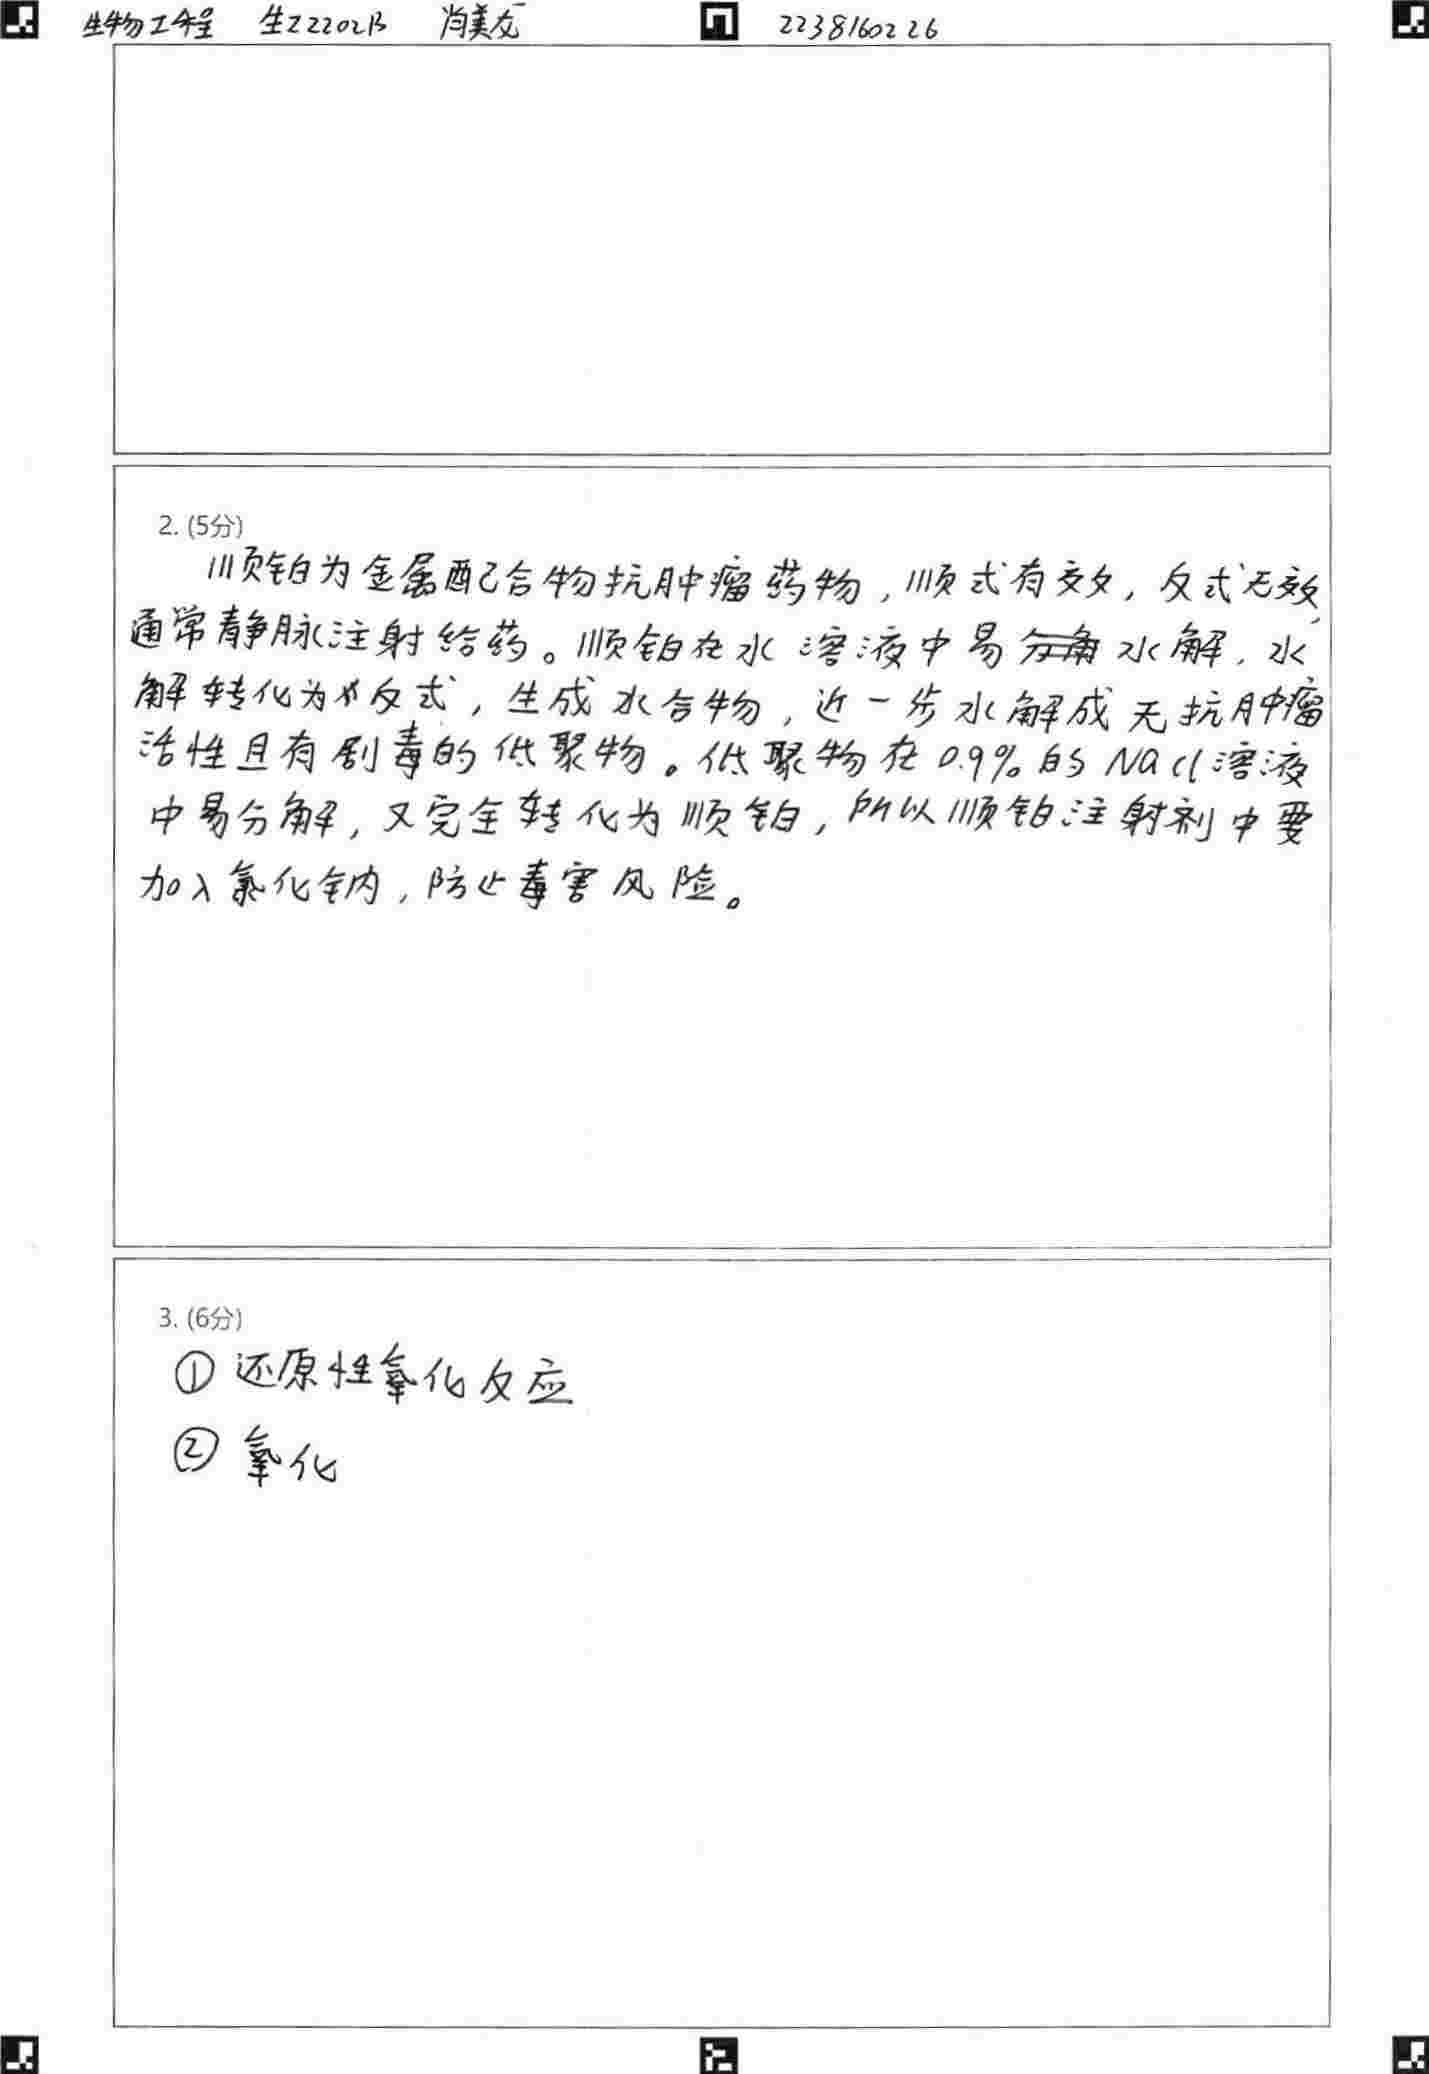 生物工程 生Z2202B 肖美龙 2238160226
2. (5分)
顺铂为金属配合物抗肿瘤药物,顺式有效,反式无效,
通常静脉注射给药。顺铂在水溶液中易水解,水
解转化为反式,生成水合物,近一步水解成无抗肿瘤
活性且有剧毒的低聚物。低聚物在0.9%的NaCl溶液
中易分解,又完全转化为顺铂,所以顺铂注射剂中要
加入氯化钠,防止毒害风险。
3. (6分)
① 还原性氧化反应
② 氧化